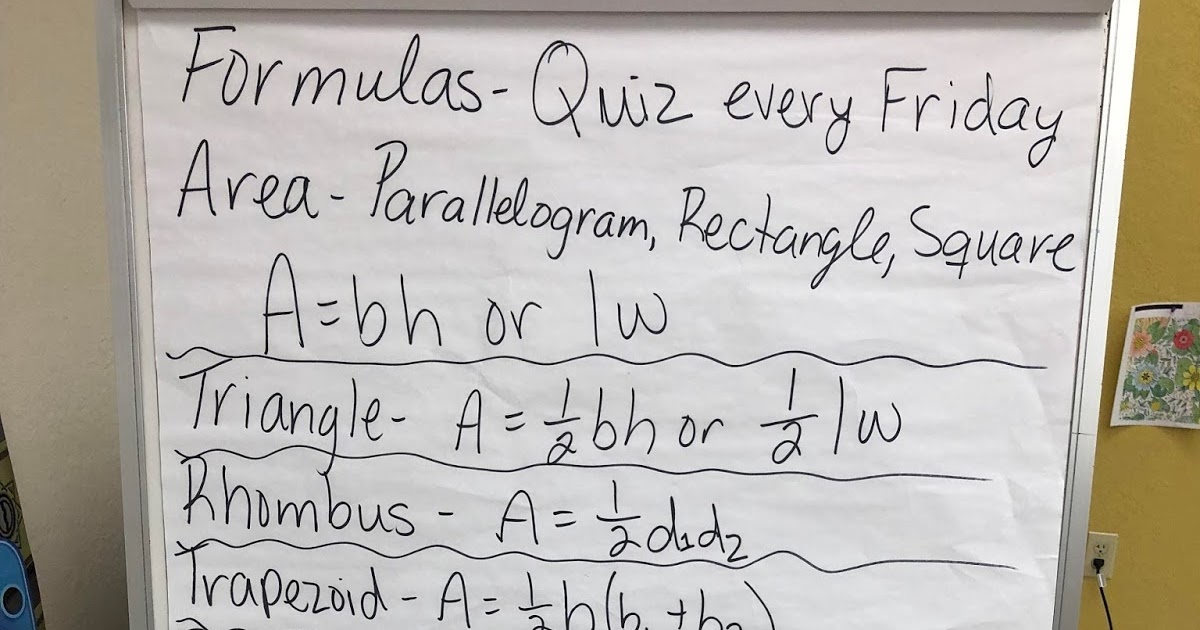 Formulas - Quiz every Friday
Area - Parallelogram, Rectangle, Square
A = bh or lw
Triangle - A = 1/2 bh or 1/2 lw
Rhombus - A = 1/2 d₁d₂
Trapezoid - A = 1/2 h(b₁ + b₂)